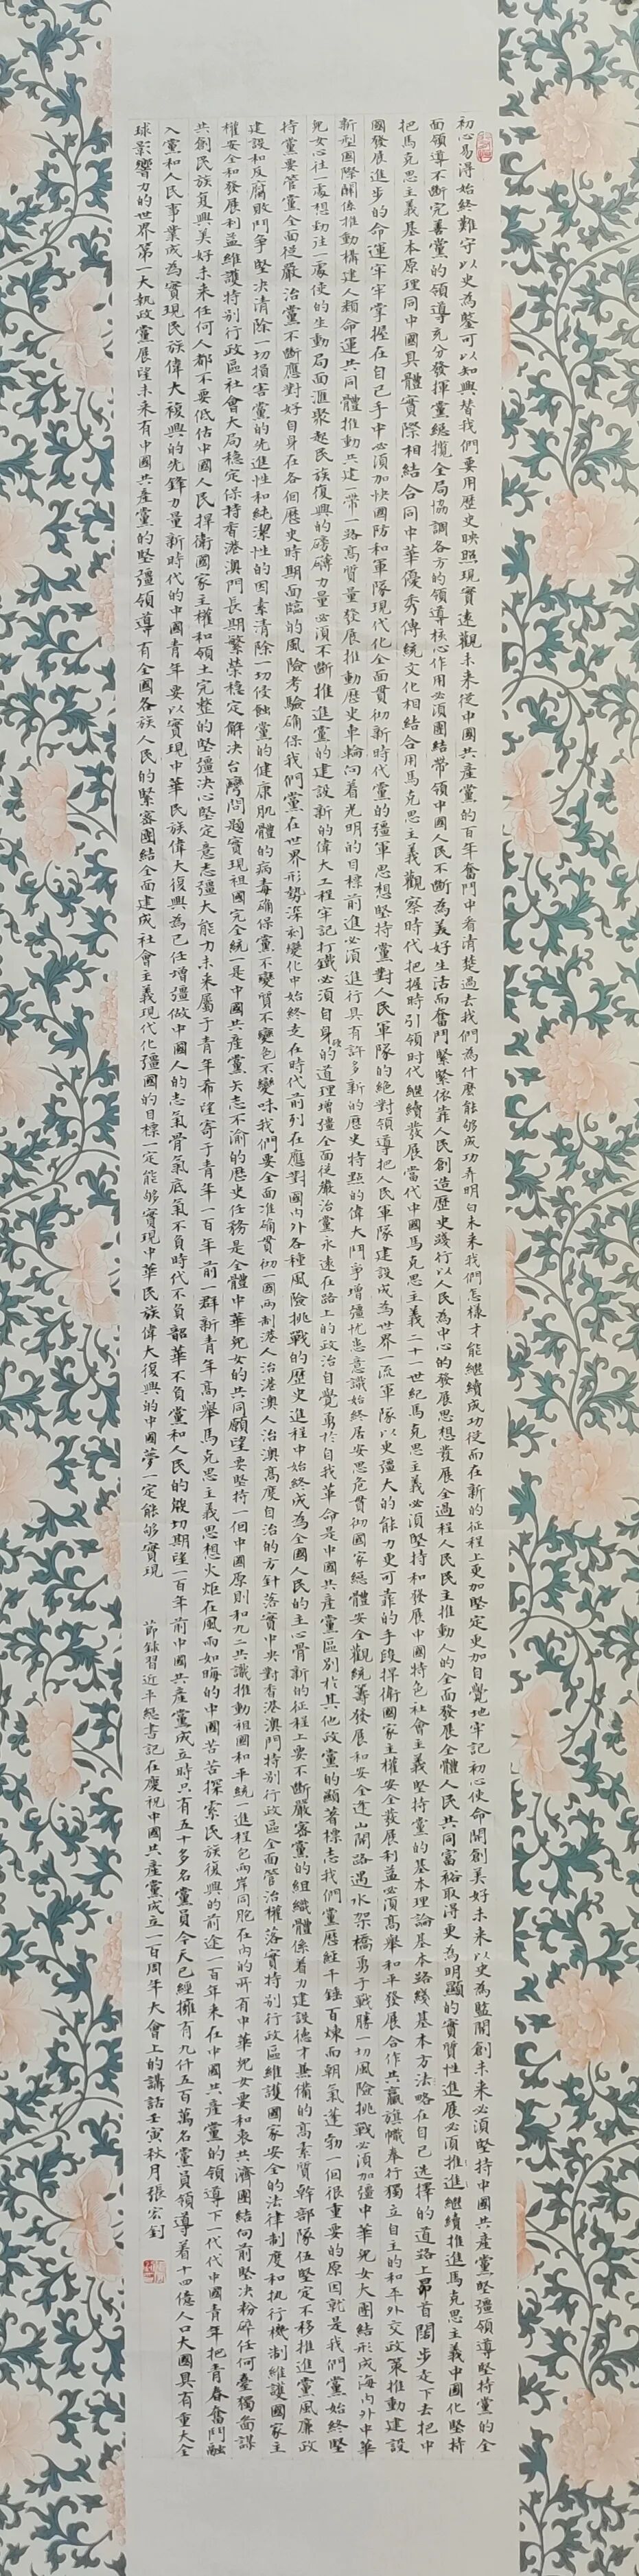 初心易得始終難守以史為鑒可以知興替我們要用歷史映照現實遠觀未來從中國共產黨的百年奮鬥中看清楚過去我們為什麼能夠成功弄明白未來我們怎樣才能繼續成功從而在新的征程上更加堅定更加自覺地牢記初心使命開創美好未來以史為監開創未來必須堅持中國共產黨堅彊領導堅持黨的全
面領導不斷完善黨的領導充分發揮黨總攬全局協調各方的領導核心作用必須團結帶領中國人民不斷為美好生活而奮鬥緊緊依靠人民創造歷史踐行以人民為中心的發展思想發展全過程人民民主推動人的全面發展全體人民共同富裕取得更為明顯的實質性進展必須推進繼續推進馬克思主義中國化堅持
把馬克思主義基本原理同中國具體實際相結合同中華優秀傳統文化相結合用馬克思主義觀察時代把握時引領时代繼續發展當代中國馬克思主義二十一世紀馬克思主義必須堅持和發展中國特色社會主義堅持黨的基本理論基本路綫基本方法略在自己選擇的道路上昂首闊步走下去把中
國發展進步的命運牢牢掌握在自己手中必須加快國防和軍隊現代化全面貫彻新時代黨的彊軍思想堅持黨對人民軍隊的絕對領導把人民軍隊建設成為世界一流軍隊以更彊大的能力更可靠的手段捍衛國家主權安全發展利益必須高舉和平發展合作共贏旗幟奉行獨立自主的和平外交政策推動建設
新型國際關係推動構建人類命運共同體推動共建一帶一路高質量發展推動歷史車輪向着光明的目標前進必須進行具有許多新的歷史特點的偉大鬥爭增彊忧患意識始終居安思危貫彻國家總體安全觀統籌發展和安全逢山開路遇水架橋勇于戰勝一切風險挑戰必須加彊中華兒女大團結形成海內外中華
兒女心往一處想劲往一處使的生動局面匯聚起民族復興的磅礴力量必須不斷推進黨的建設新的偉大工程牢記打鐵必須自身硬的道理增彊全面從嚴治黨永遠在路上的政治自覺勇於自我革命是中國共產黨區別於其他政黨的顯著標志我們黨歷經千錘百煉而朝氣蓬勃一個很重要的原因就是我們黨始終堅
持黨要管黨全面從嚴治黨不斷應對好自身在各個歷史時期面臨的風險考驗确保我們黨在世界形勢深刻變化中始終走在時代前列在應對國内外各種風險挑戰的歷史進程中始終成為全國人民的主心骨新的征程上要不斷嚴密黨的組織體係着力建設德才兼備的高素質幹部隊伍堅定不移推進黨風廉政
建設和反腐敗鬥爭堅決清除一切損害黨的先進性和純潔性的因素清除一切侵蝕黨的健康肌體的病毒确保黨不變質不變色不變味我們要全面准确貫彻一國兩制港人治港澳人治澳高度自治的方針落實中央對香港澳門特别行政區全面管治權落實特别行政區維護國家安全的法律制度和执行機制維護國家主
權安全和發展利益維護特别行政區社會大局穩定保持香港澳門長期繁榮穩定解決台灣問題實現祖國完全統一是中國共產黨矢志不渝的歷史任務是全體中華兒女的共同願望要堅持一個中國原則和九二共識推動祖國和平統一進程包兩岸同胞在內的所有中華兒女要和衷共濟團結向前堅決粉碎任何臺獨圖謀
共創民族复興美好未来任何人都不要低估中國人民捍衛國家主權和領土完整的堅彊決心堅定意志彊大能力未來屬于青年希望寄于青年一百年前一群新青年高舉馬克思主義思想火炬在風雨如晦的中國苦苦探索民族復興的前途一百年来在中國共產黨的領導下一代代中國青年把青春奮鬥融
入黨和人民事業成為實現民族偉大複興的先鋒力量新時代的中國青年要以實現中華民族偉大復興為己任增彊做中國人的志氣骨氣底氣不負時代不負韶華不負黨和人民的殷切期望一百年前中國共產黨成立時只有五十多名黨員今天已經擁有九仟五百萬名黨員領導着十四億人口大國具有重大全
球影響力的世界第一大執政黨展望未来有中國共產黨的堅彊領導有全國各族人民的緊密團結全面建成社會主義現代化彊國的目標一定能够實現中華民族偉大復興的中國夢一定能够實現
節錄習近平總書記在慶祝中國共產黨成立一百周年大會上的講話壬寅秋月張宏釗